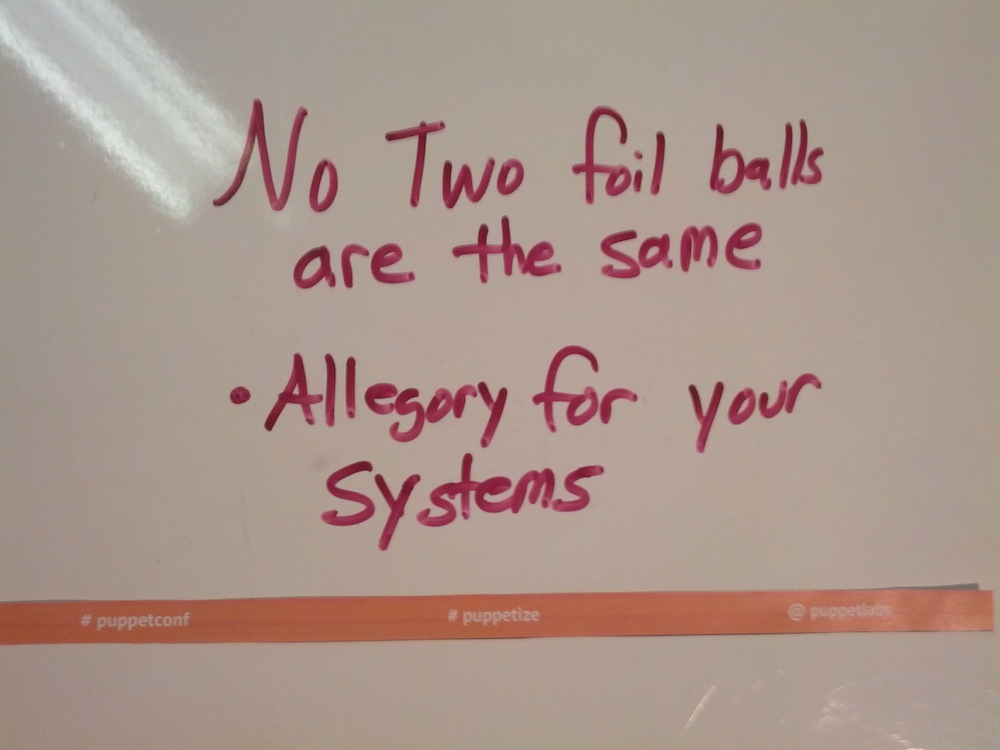 No Two foil balls
are the same
• Allegory for your
Systems
# puppetconf # puppetize @ puppetlabs